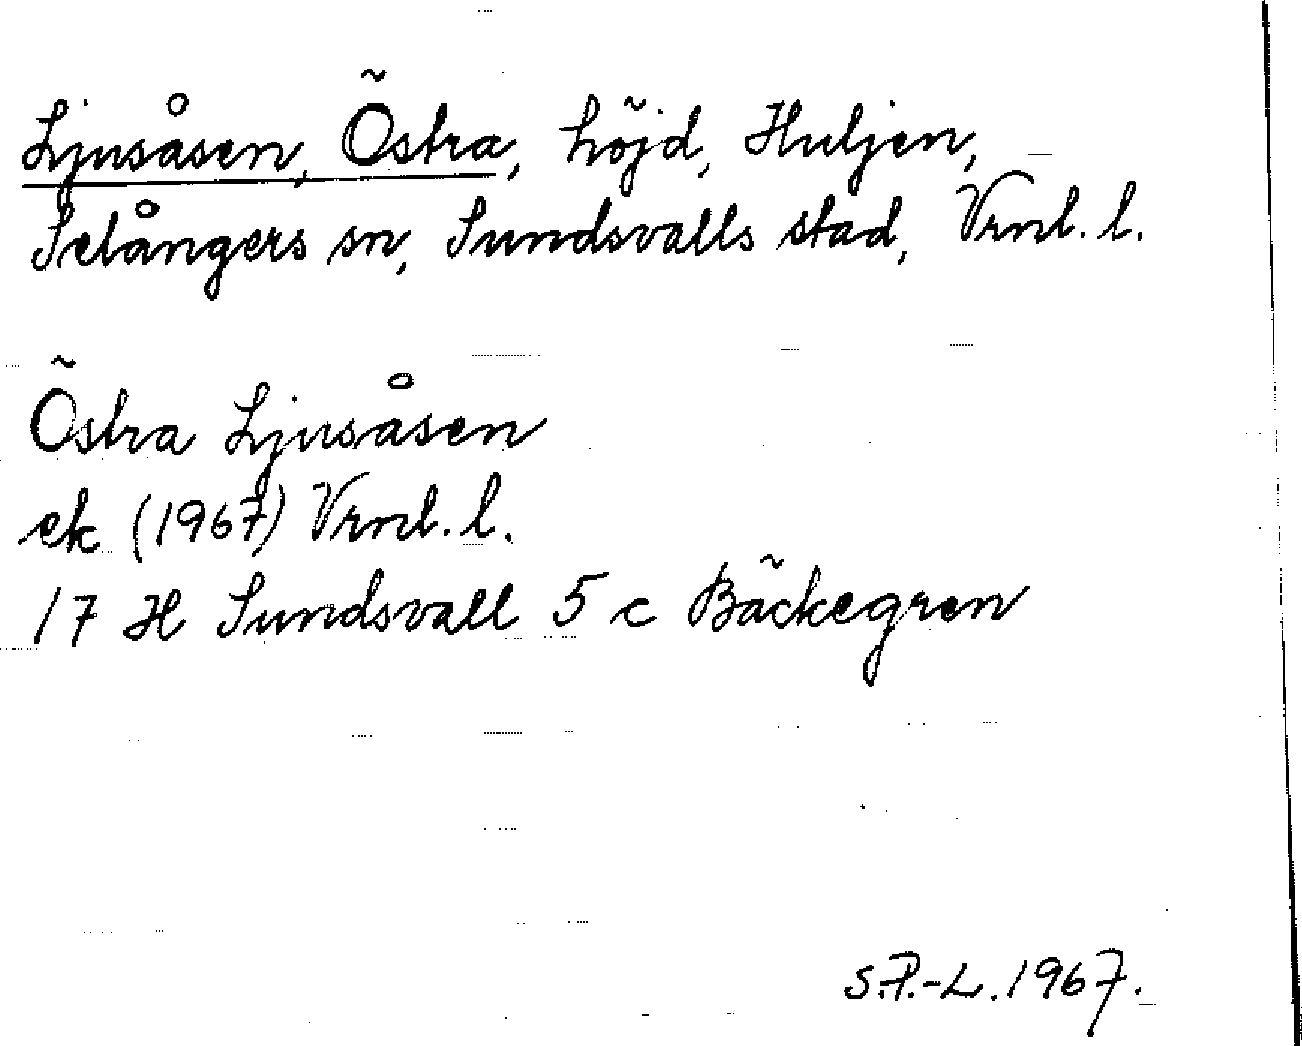 Ljusåsen, Östra, höjd, Huljen,
Selångers sn, Sundsvalls stad, Vrnl. l.
Östra Ljusåsen
ek (1967) Vrnl. l.
17 H Sundsvall 5 c Bäckegren
S.P.-L. 1967.